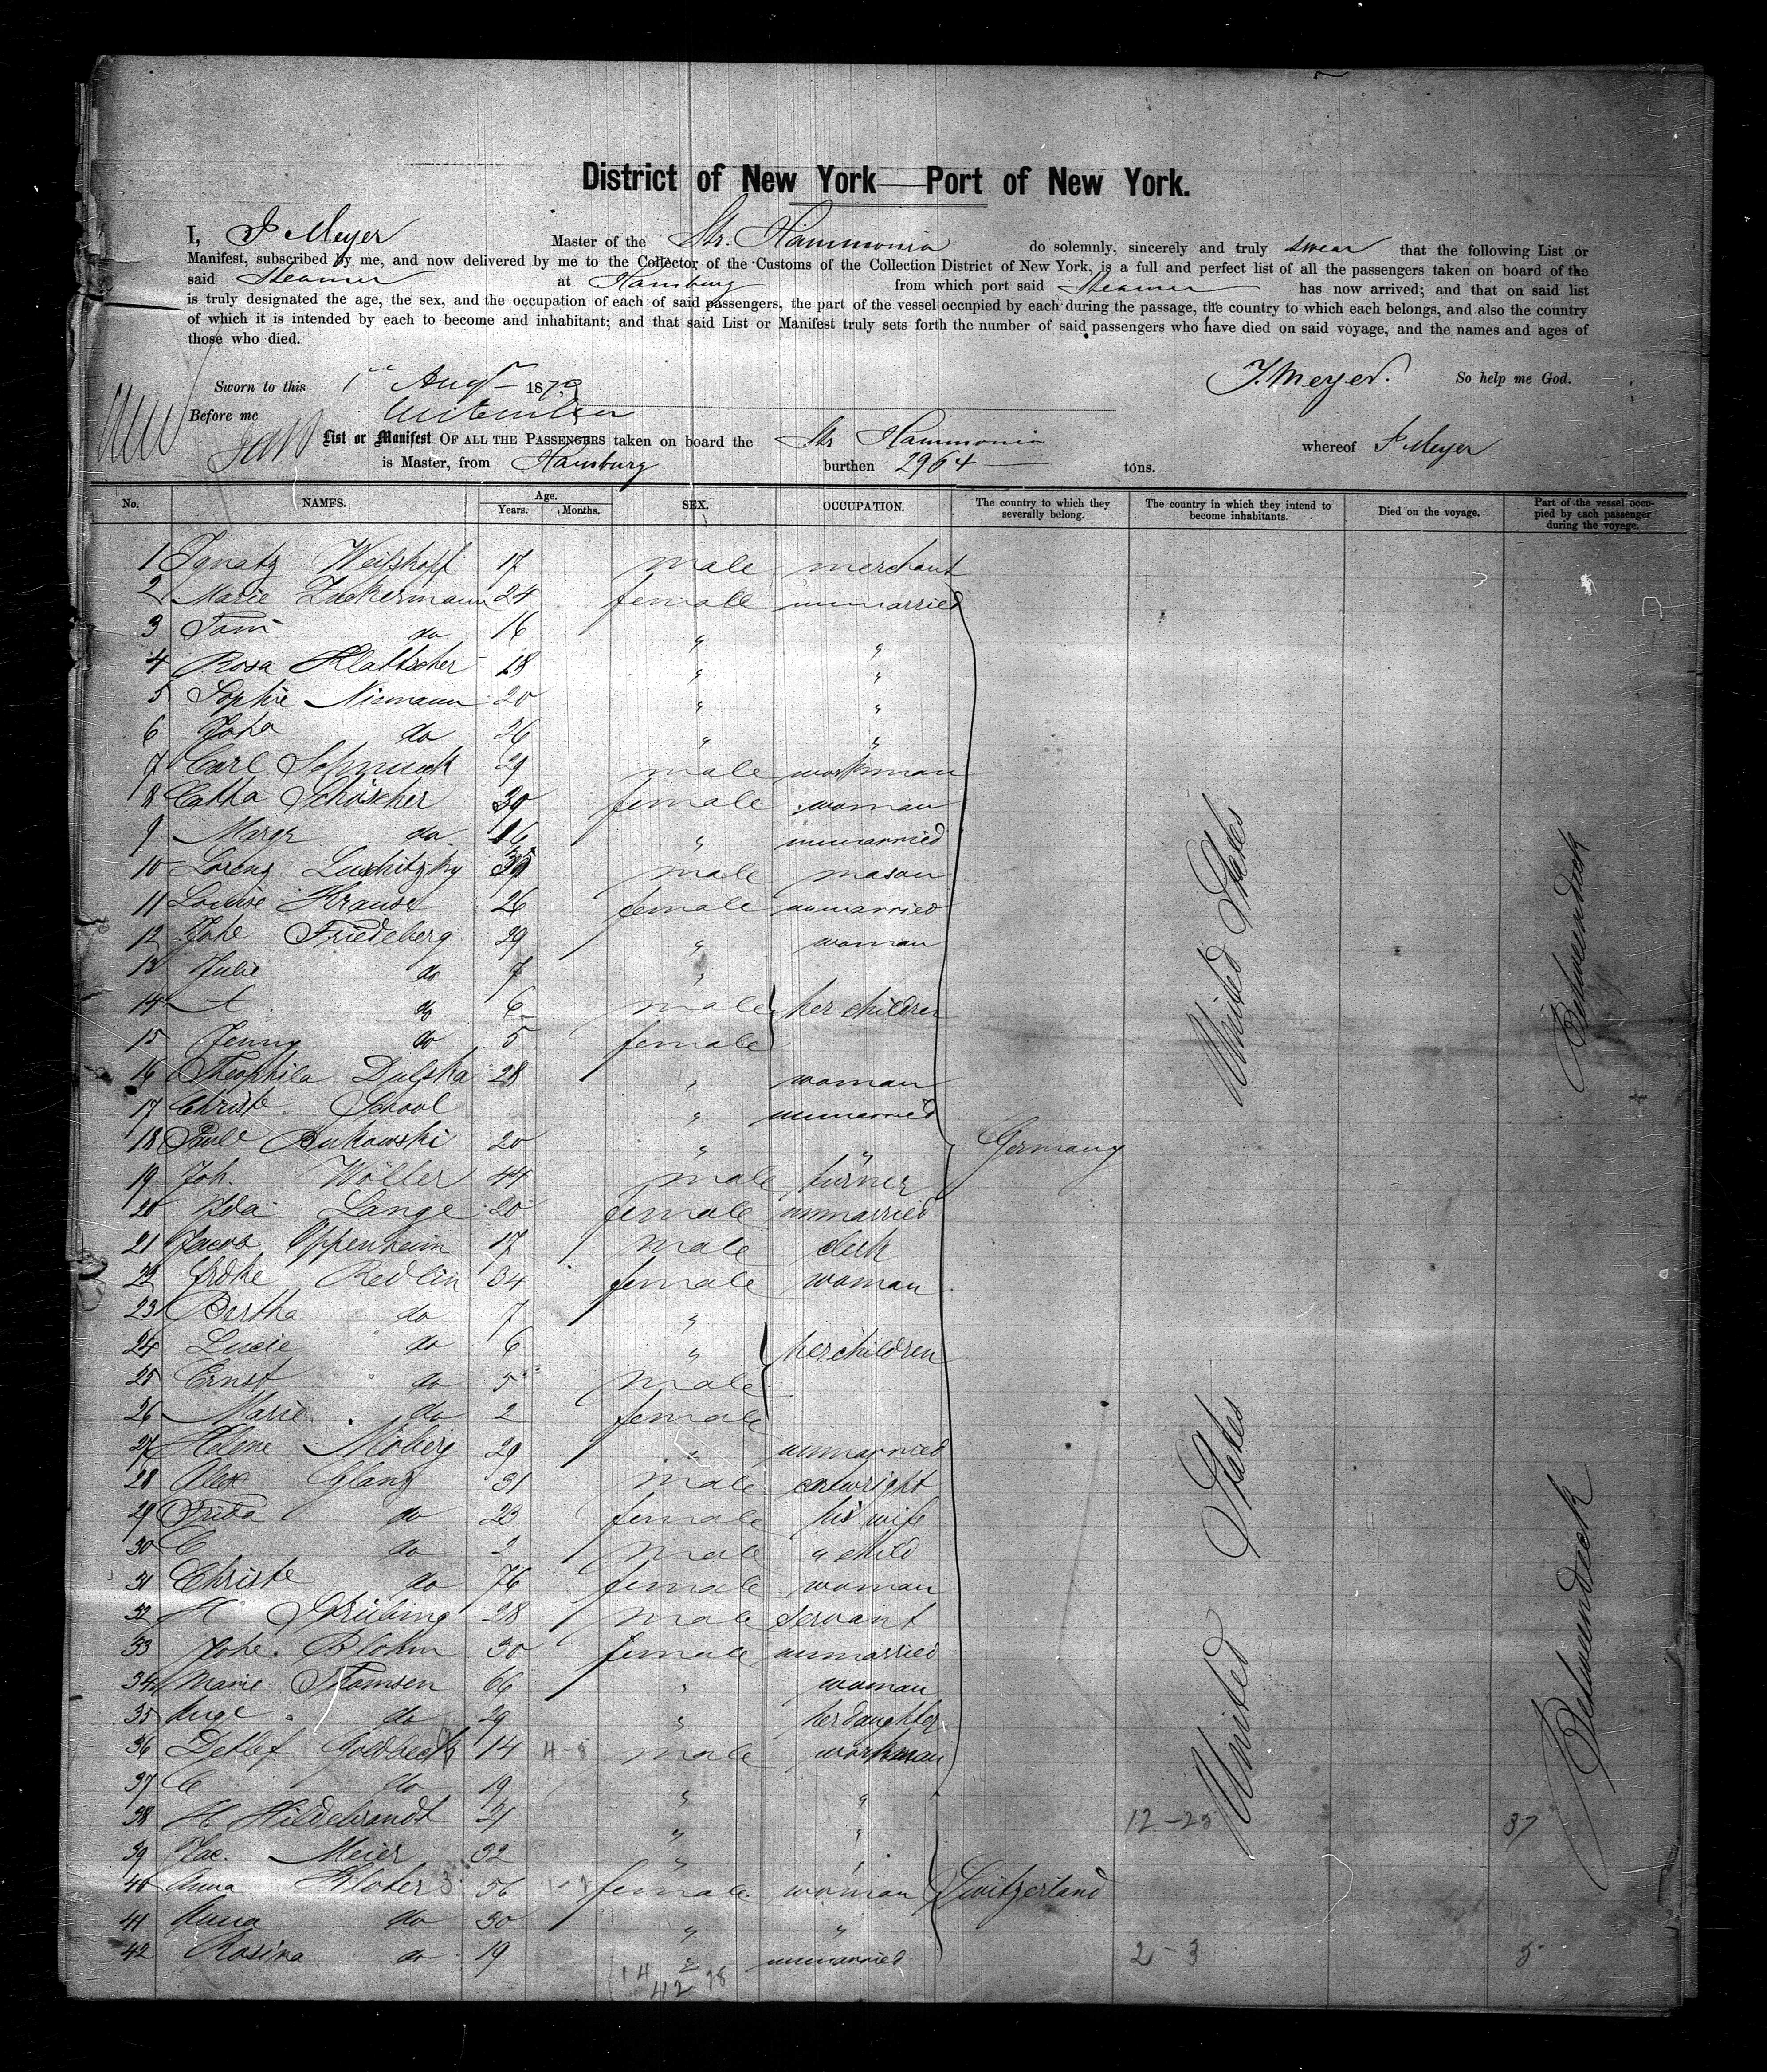 District of New York — Port of New York.
I, J Meyer Master of the Str. Hammonia do solemnly, sincerely and truly swear that the following List or
Manifest, subscribed by me, and now delivered by me to the Collector of the Customs of the Collection District of New York, is a full and perfect list of all the passengers taken on board of the
said Steamer at Hamburg from which port said Steamer has now arrived; and that on said list
is truly designated the age, the sex, and the occupation of each of said passengers, the part of the vessel occupied by each during the passage, the country to which each belongs, and also the country
of which it is intended by each to become and inhabitant; and that said List or Manifest truly sets forth the number of said passengers who have died on said voyage, and the names and ages of
those who died.
Sworn to this 1st Augst 1879 J. Meyer. So help me God.
Before me
List or Manifest OF ALL THE PASSENGERS taken on board the Str Hammonia whereof J Meyer
is Master, from Hamburg burthen 2964 tons.
No. NAMES. Age. Years. Months. SEX. OCCUPATION. The country to which they severally belong. The country in which they intend to become inhabitants. Died on the voyage. Part of the vessel occupied by each passenger during the voyage.
1 Ignatz Weisshoff 17 male merchant
2 Marie Zuckermann 24 female unmarried
3 Fani do 16 " "
4 Rosa Klattscher 18 " "
5 Sophie Niemann 20 " "
6 Joha do 26 " "
7 Carl Schmuck 29 male workman
8 Catha Schöscher 30 female woman
9 Margr do 16 " unmarried
10 Lorenz Luschitzky male mason
11 Louise Krause 26 female unmarried
12 Johe Friedeberg 29 " woman
13 Julie do 7 "
14 do 6 male her children
15 Jenny do 5 female
16 Theophila Dulska 28 " woman
17 Christe School " unmarried
18 Paule Bukowski 20 " "
19 Joh. Wöller 44 male turner
20 Ida Lange 20 female unmarried
21 Jacob Oppenheim 17 male clerk
22 Frdke Redlin 34 female woman
23 Bertha do 7 "
24 Lucie do 6 " her children
25 Ernst do 5 male
26 Marie do 2 female
27 Helene Moberg 29 " unmarried
28 Alex Glanz 31 male cartwright
29 Frida do 23 female his wife
30 C do 2 male " child
31 Christe do 76 female woman
32 H Strübing 28 male servant
33 Johe. Blohm 30 female unmarried
34 Marie Thomsen 66 " woman
35 Auge do 29 " her daughter
36 Detlef Goldbeck 14 male workman
37 C do 19 " "
38 H Hildebrandt 21 " "
39 Jac. Meier 32 " "
40 Anna Kloter 56 female woman Switzerland
41 Anna do 30 " "
42 Rosina do 19 " unmarried
Germany
United States
United States
Betweendeck
Betweendeck
37
2-3
42